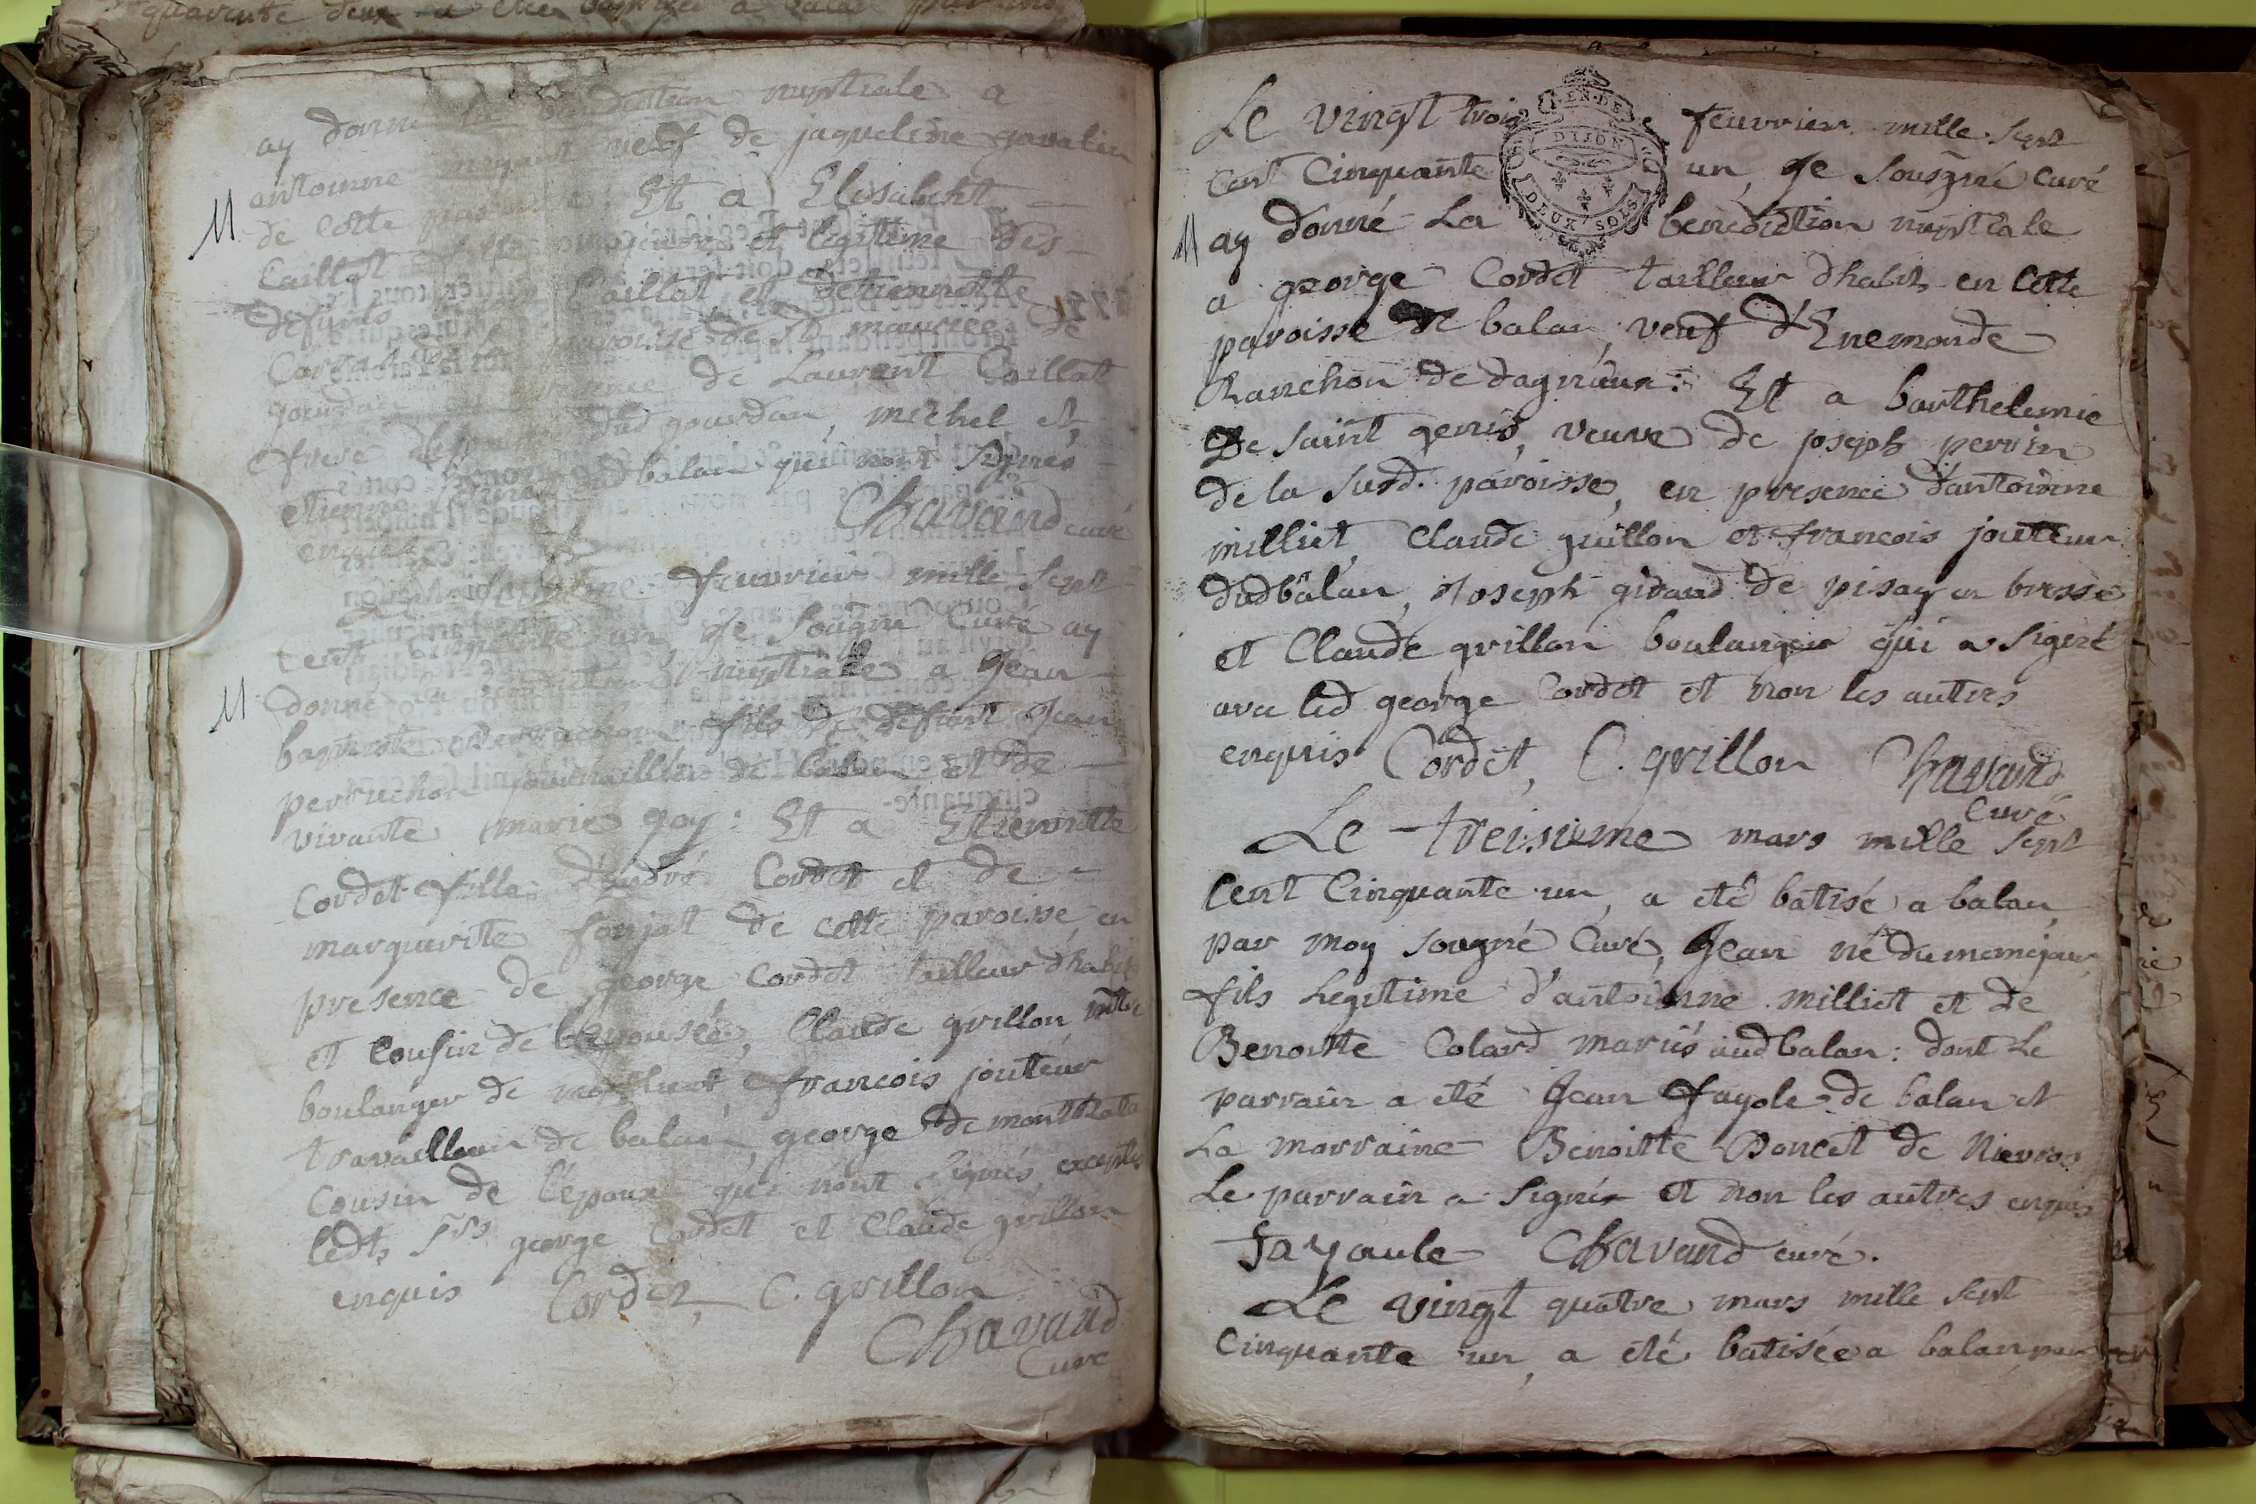 quarante deux a eté baptisé a balan par moy
ay donné la benediction nuptiale a
antoinne veuf de jaqueline gavalin
de cette Et a Elisabeht
Caillat et legitime des
defunts Caillat et Etiennette
paroisse de St maurice de
gourdan de Laurent Caillat
frere dud gourdan, michel et
etienne balan qui n'ont signés
enquis Chavand curé
Le feuvrier mille sept
cent cinquante un je sougné Curé ay
donné la benediction nuptiale a Jean
baptiste perruchon fils de defunt Jean
perruchon de balan et de
vivante marie gay : Et a Etiennette
Cordet fille d'andré Cordet et de
marguerite fonjat de cette paroisse, en
presence de george Cordet tailleur dhabits
et cousin de lepousée, Claude grillon mtre
boulanger de montluel francois jouteur
travailleur de balan, george de
Cousin de l'epoux qui n'ont signés, exceptés
ledts srs george Cordet et Claude grillon
enquis Cordet, C. grillon
Chavand
Curé
GEN. DE
DIJON
DEUX SOLS
Le vingt trois feuvrier mille sept
Cent Cinquante un, je sousgné curé
ay donné La benediction nuptiale
a george Cordet tailleur dhabits en cette
paroisse de balan, veuf d'Enemonde
Ranchon de dagnieux : Et a barthelemie
De saint genis, veuve de joseph perrin
de la susd. paroisse, en presence d'antoinne
milliet, Claude guillon et francois jouteur
dudbalan, Joseph giraud de pisay en bresse
et Claude grillon boulanger qui a signé
avec led george Cordet et non les autres
enquis Cordet, C. grillon Chavand
Curé
Le treisieme mars mille sept
Cent Cinquante un, a eté batisé a balan,
par moy sougné Curé, Jean né du meme jour
fils Legitime d'antoinne milliet et de
Benoitte Colard mariés audbalan : dont Le
parrain a eté Jean fayole de balan et
La marraine Benoitte Poncet de Nievroz
Le parrain a signé et non les autres enquis
fayaule Chavand curé.
Le vingt quatre mars mille sept
Cinquante un, a eté batisée a balan par